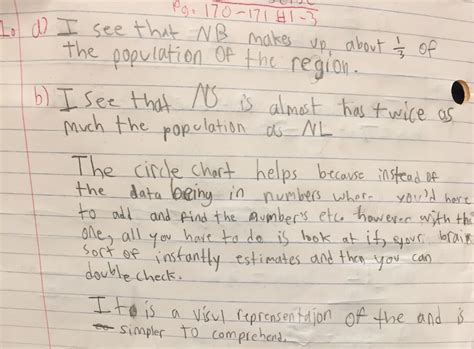 Pg. 170-171 #1-3
1. a) I see that NB makes up about 1/3 of
the population of the region.
b) I see that NS is almost has twice as
much the population as NL
The circle chart helps because instead of
the data being in numbers where you'd have
to add and find the number's etc. however with this
one, all you have to do is look at it, your brain
sort of instantly estimates and then you can
doublecheck.
It is a visul reprensentaion of the and is
simpler to comprehend.